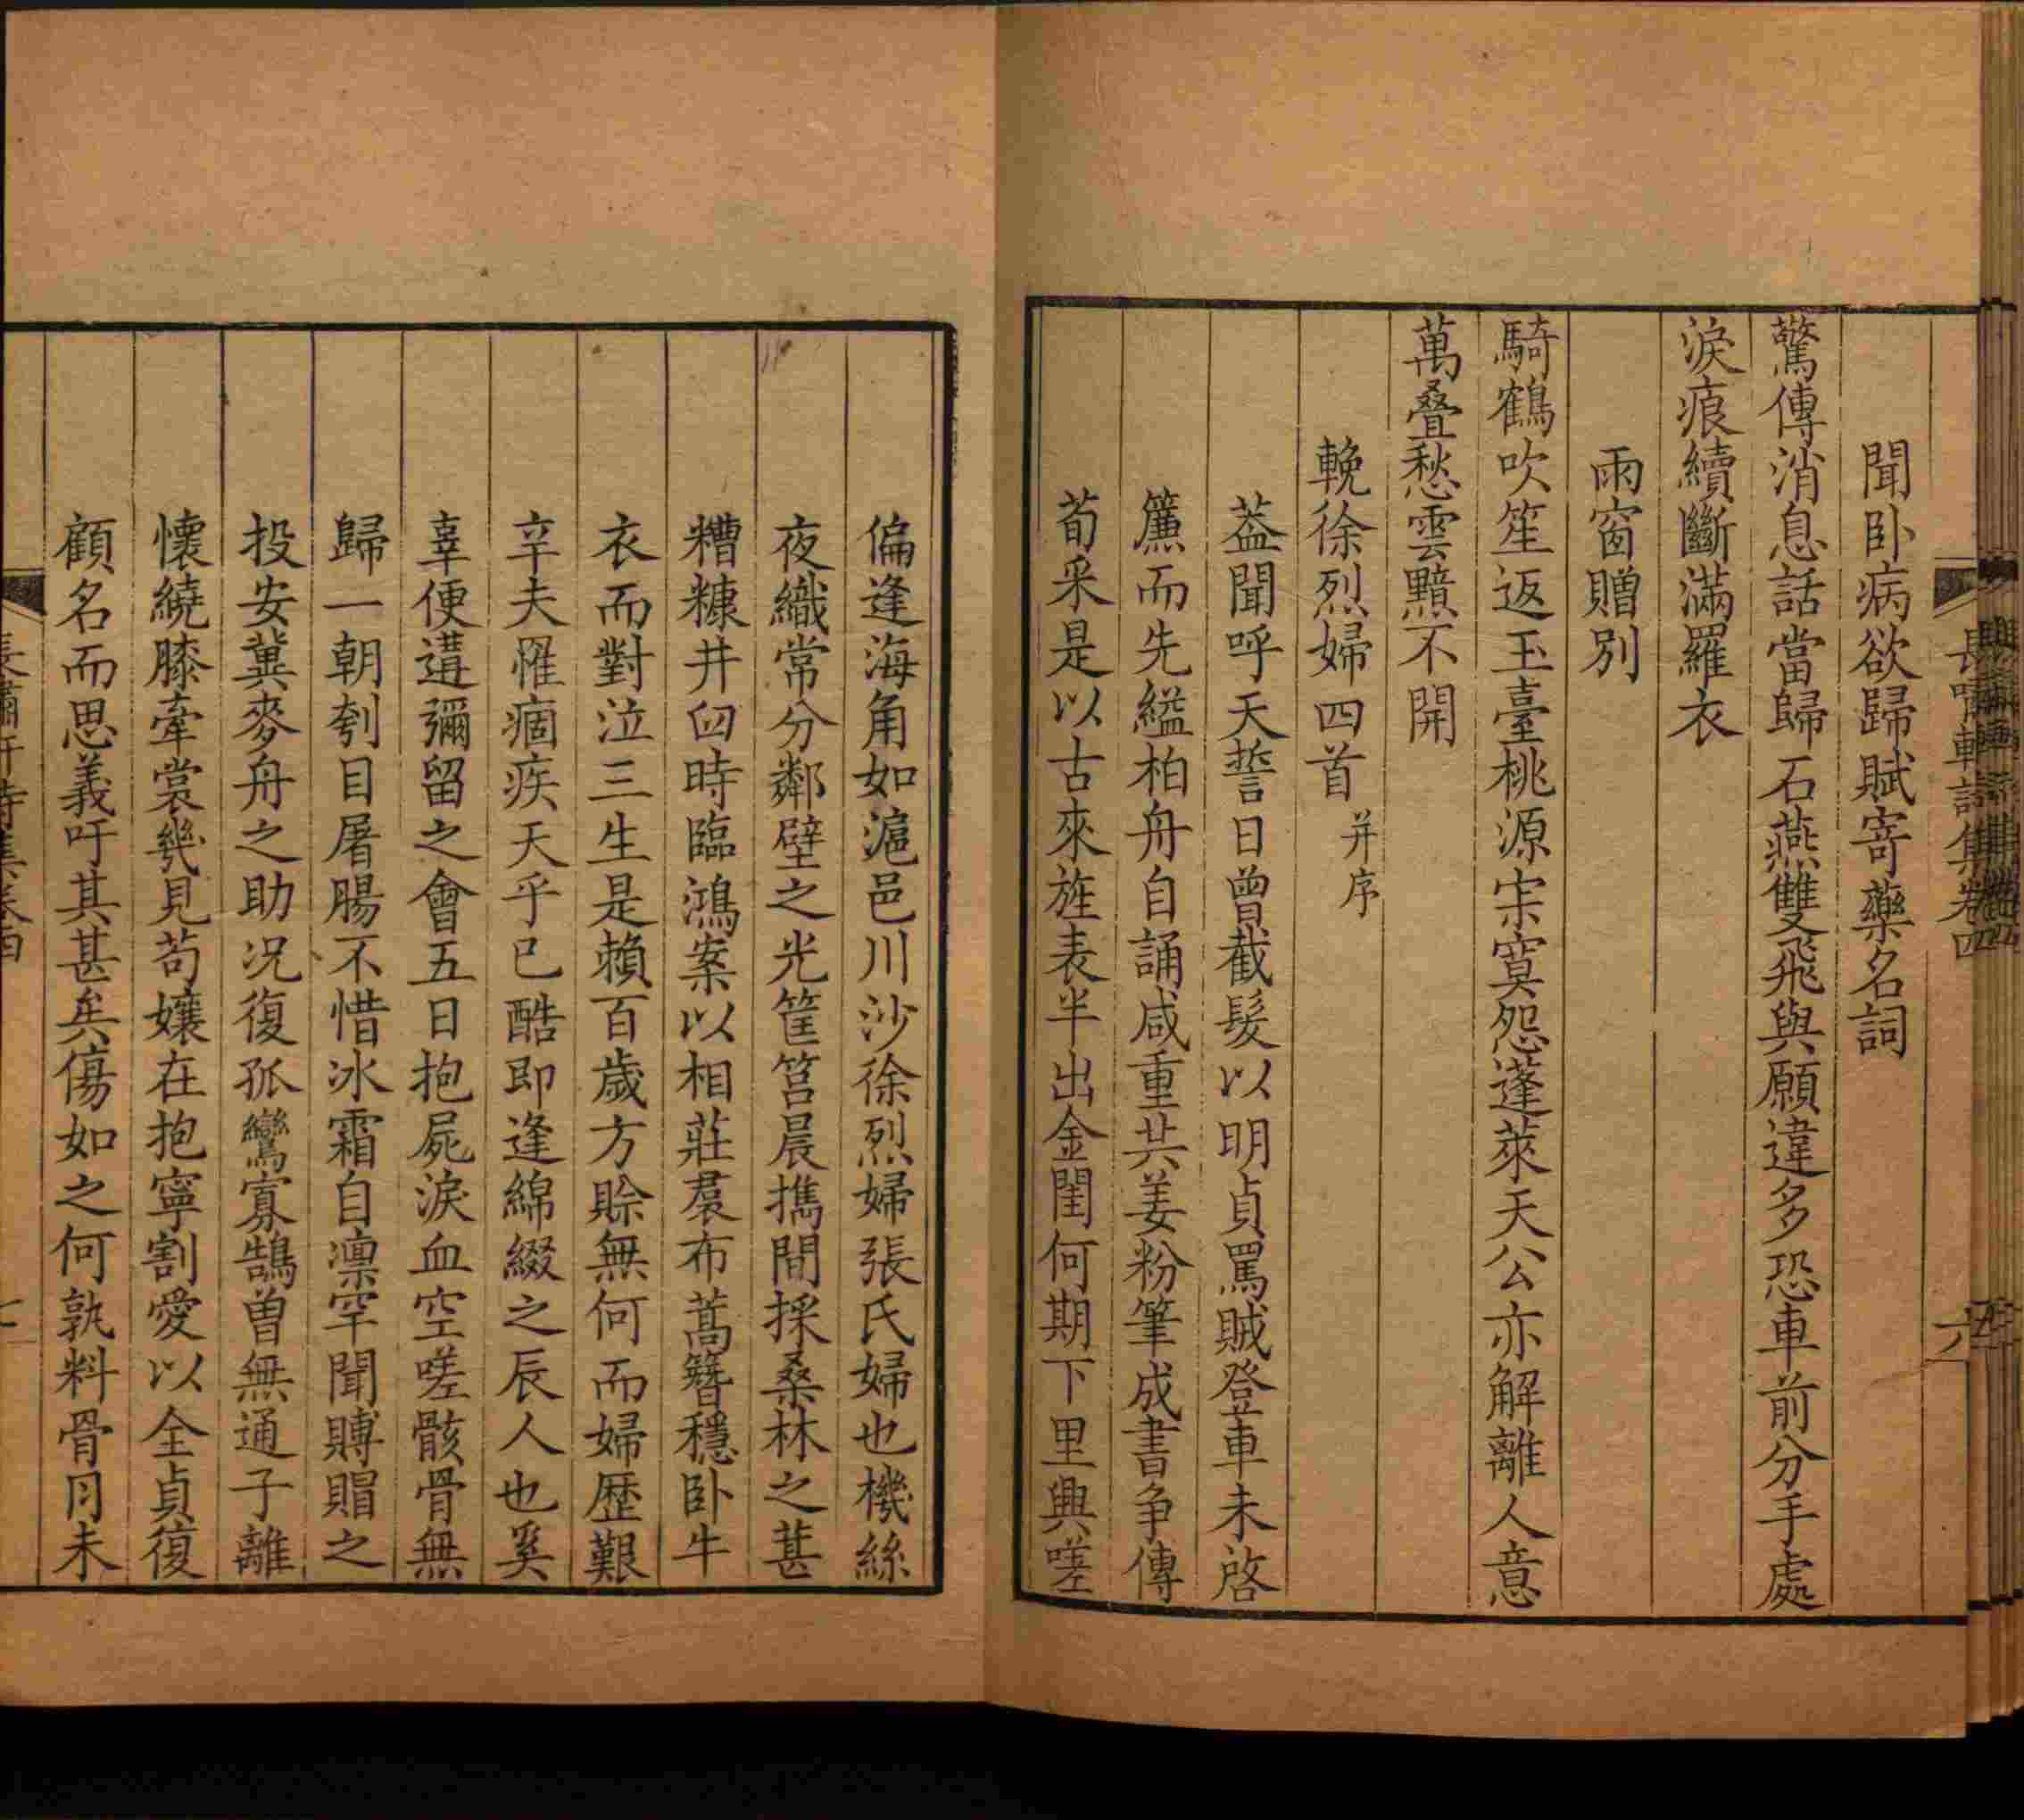 聞卧病欲歸賦寄藥名詞
驚傳消息話當歸石燕雙飛與願違多恐車前分手處
淚痕續斷滿羅衣
雨窗贈別
騎鶴吹笙返玉臺桃源宋寞怨蓬萊天公亦解離人意
萬疊愁雲黯不開
輓徐烈婦四首并序
葢聞呼天誓日曾截髮以明貞罵賊登車未啓
簾而先縊柏舟自誦咸重共姜粉筆成書争傳
荀采是以古來旌表半出金閨何期下里興嗟
偏逢海角如滬邑川沙徐烈婦張氏婦也機絲
夜織常分鄰壁之光筐筥晨攜間採桑林之葚
糟糠井臼時臨鴻案以相莊裠布蒿簪穩卧牛
衣而對泣三生是賴百歲方賒無何而婦歷艱
辛夫罹痼疾天乎已酷即逢綿綴之辰人也奚
辜便遘彌留之會五日抱屍淚血空嗟骸骨無
歸一朝刳目屠腸不惜冰霜自凛罕聞賻賵之
投安冀麥舟之助况復孤鸞寡鵠曾無通子離
懷繞膝牽裳幾見苟孃在抱寧割愛以全貞復
顧名而思義吁其甚矣傷如之何孰料骨月未
長嘯軒詩集卷四
六